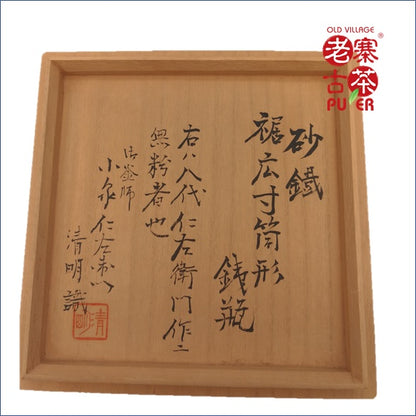 OLD VILLAGE
老寨
古茶
PU'ER
砂鐵
裾広寸筒形
銕瓶
右ハ八代仁左衛門作ニ
無粉者也
御釜師
小泉仁左衛門
清明識
清明